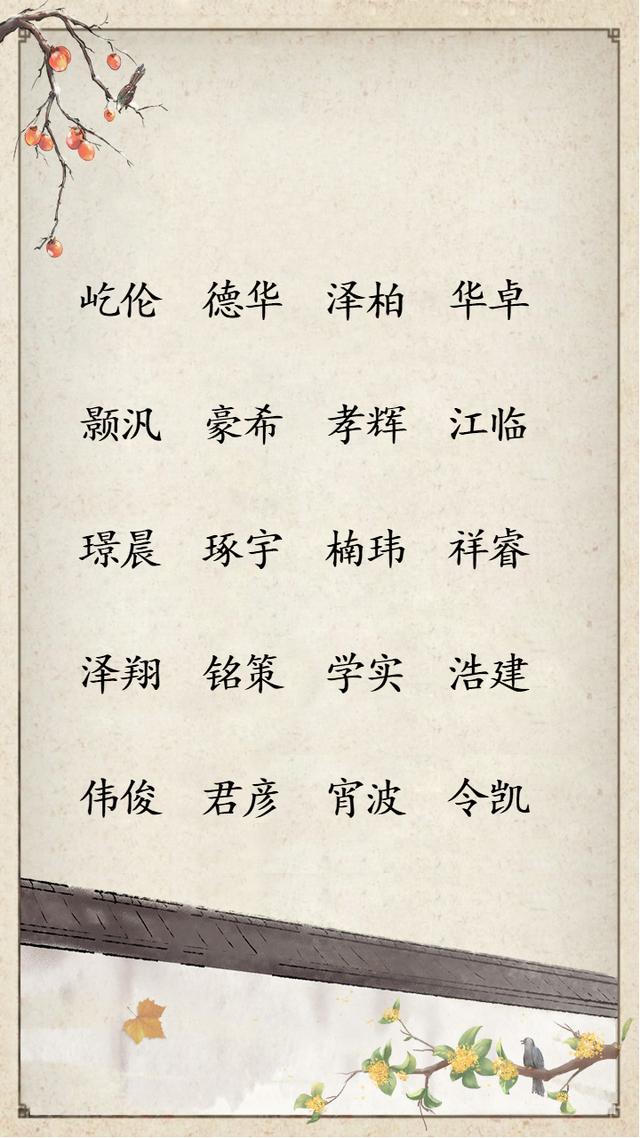 屹伦 德华 泽柏 华卓
颢汎 豪希 孝辉 江临
璟晨 琢宇 楠玮 祥睿
泽翔 铭策 学实 浩建
伟俊 君彦 宵波 令凯